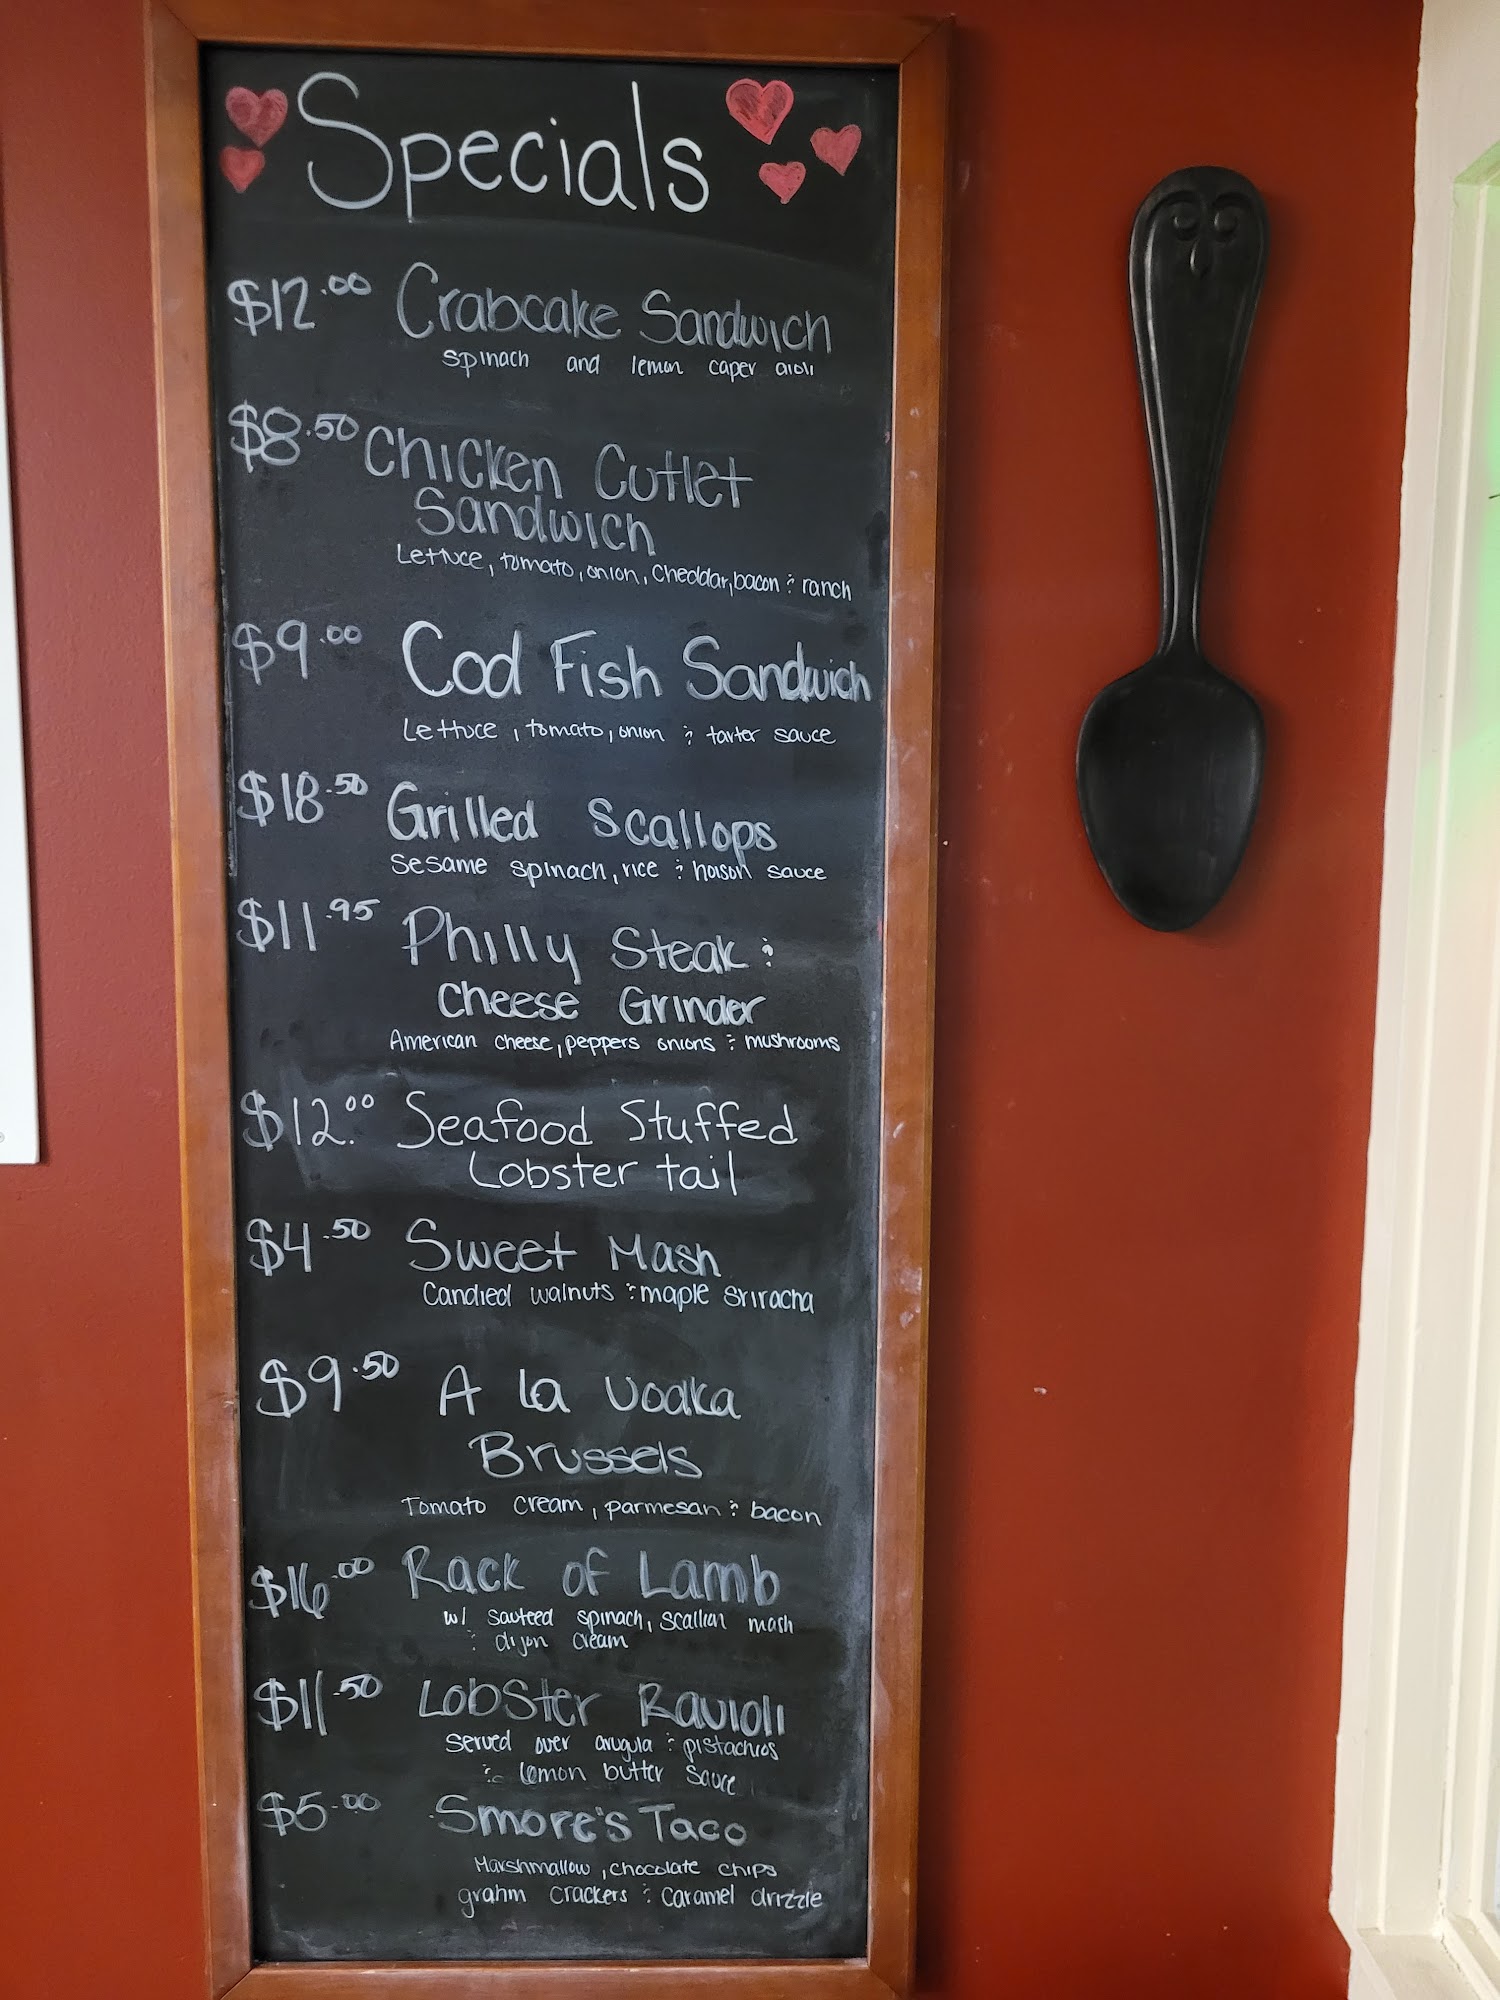 Specials
$12.00 Crabcake Sandwich
spinach and lemon caper aioli
$8.50 Chicken Cutlet
Sandwich
Lettuce, tomato, onion, cheddar, bacon & ranch
$9.00 Cod Fish Sandwich
Lettuce, tomato, onion & tarter sauce
$18.50 Grilled Scallops
Sesame spinach, rice & hoison sauce
$11.95 Philly Steak &
Cheese Grinder
American cheese, peppers onions & mushrooms
$12.00 Seafood Stuffed
Lobster tail
$4.50 Sweet Mash
Candied walnuts & maple sriracha
$9.50 A la vodka
Brussels
Tomato cream, parmesan & bacon
$16.00 Rack of Lamb
w/ sauteed spinach, scallion mash
& dijon cream
$11.50 Lobster Ravioli
served over arugula & pistachios
& lemon butter sauce
$5.00 Smore's Taco
Marshmallow, chocolate chips
grahm crackers & caramel drizzle